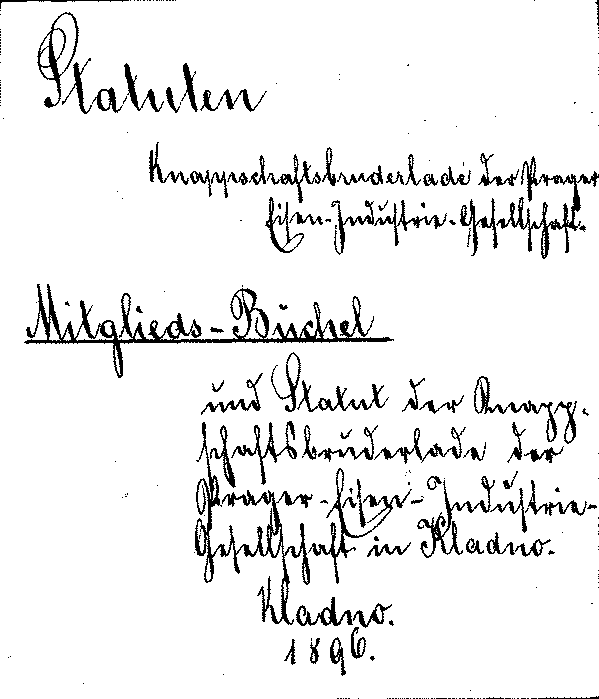 Statuten
Knappschaftsbruderlade der Prager
Eisen-Industrie-Gesellschaft.
Mitglieds-Büchel
und Statut der Knapp-
schaftsbruderlade der
Prager-Eisen-Industrie-
Gesellschaft in Kladno.
Kladno.
1896.